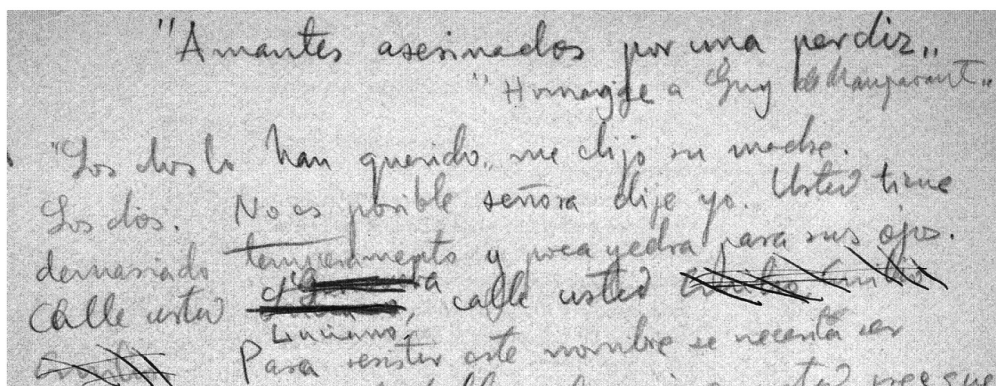 "Amantes asesinados por una perdiz"
"Hommage a Guy de Maupassant"
"Los dos lo han querido, me dijo su madre.
Los dos. No es posible señora dije yo. Usted tiene
demasiado temperamento y para sus ojos.
Calle usted calle usted
Luciano,
Para resistir este nombre se necesita ser